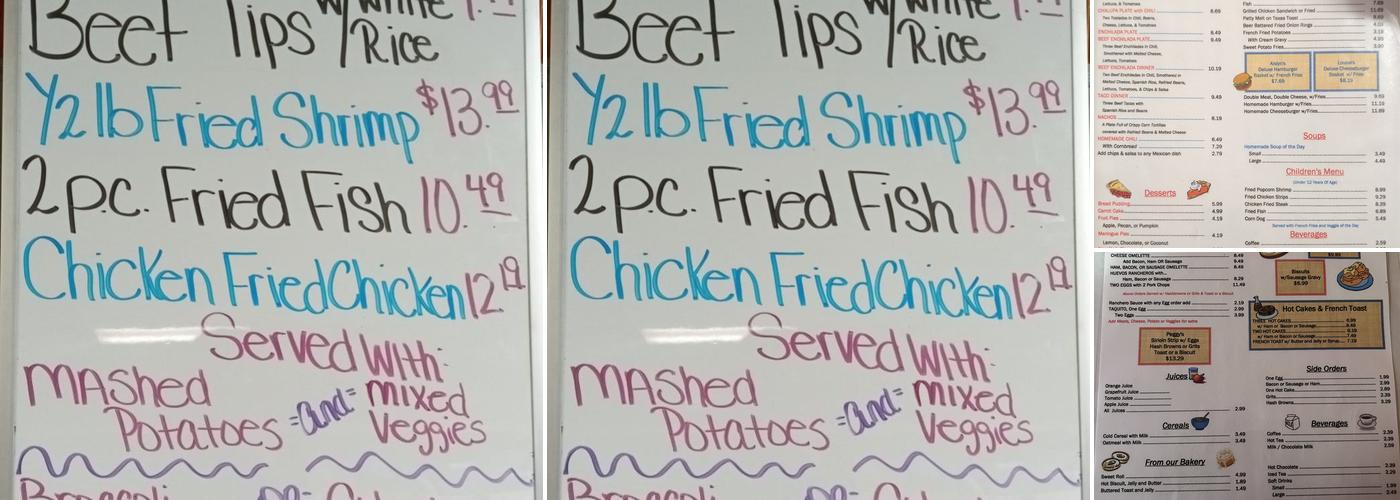 Beef Tips w/White
Rice
1/2 lb Fried Shrimp $13.99
2 p.c. Fried Fish 10.49
Chicken Fried Chicken 12.19
Served With:
MAShed
Potatoes =and= mixed
Veggies
Broccoli
Beef Tips w/White
Rice
1/2 lb Fried Shrimp $13.99
2 p.c. Fried Fish 10.49
Chicken Fried Chicken 12.19
Served With:
MAShed
Potatoes =and= mixed
Veggies
Broccoli
Lettuce, & Tomato
CHALUPA PLATE with CHILI 8.69
Two Tostadas in Chili, Beans,
Cheese, Lettuce, & Tomatoes
ENCHILADA PLATE 8.49
BEEF ENCHILADA PLATE 9.49
Three Beef Enchiladas in Chili,
Smothered with Melted Cheese,
Lettuce, Tomatoes
BEEF ENCHILADA DINNER 10.19
Two Beef Enchiladas in Chili, Smothered in
Melted Cheese, Spanish Rice, Refried Beans,
Lettuce, Tomatoes, & Chips & Salsa
TACO DINNER 9.49
Three Beef Tacos with
Spanish Rice and Beans
NACHOS 8.19
A Plate Full of Crispy Corn Tortillas
covered with Refried Beans & Melted Cheese
HOMEMADE CHILI 6.49
With Cornbread 7.29
Add chips & salsa to any Mexican dish 2.79
Desserts
Bread Pudding 5.99
Carrot Cake 4.99
Fruit Pies 4.19
Apple, Pecan, or Pumpkin
Meringue Pies 4.19
Lemon, Chocolate, or Coconut
Fish 7.69
Grilled Chicken Sandwich or Fried 11.69
Patty Melt on Texas Toast
Beer Battered Fried Onion Rings
French Fried Potatoes 3.19
With Cream Gravy
Sweet Potato Fries
Deluxe Hamburger
Basket w/ French Fries
$7.69
Deluxe Cheeseburger
Basket w/ Fries
$8.19
Double Meat, Double Cheese, w/Fries 9.69
Homemade Hamburger w/Fries 11.19
Homemade Cheeseburger w/Fries 11.69
Soups
Homemade Soup of the Day
Small 3.49
Large 4.49
Children's Menu
(Under 12 Years Of Age)
Fried Popcorn Shrimp 8.99
Fried Chicken Strips 9.29
Chicken Fried Steak 8.39
Fried Fish 6.89
Corn Dog 5.49
Served with French Fries and Veggie of the Day
Beverages
Coffee 2.59
CHEESE OMELETTE 8.49
Add Bacon, Ham OR Sausage 9.49
HAM, BACON, OR SAUSAGE OMELETTE 8.49
HUEVOS RANCHEROS with...
Ham, Bacon or Sausage 8.29
TWO EGGS with 2 Pork Chops 11.49
Ranchero Sauce with any Egg order add 2.19
TAQUITO, One Egg 2.99
Two Eggs 3.99
Add Meats, Cheese, Potato or Veggies for extra
Peggy's
Sirloin Strip w/ Eggs
Hash Browns or Grits
Toast or a Biscuit
$13.29
Juices
Orange Juice
Grapefruit Juice
Tomato Juice
Apple Juice
All Juices 2.99
Cereals
Cold Cereal with Milk 3.49
Oatmeal with Milk 3.49
From our Bakery
Sweet Roll 4.99
Hot Biscuit, Jelly and Butter 1.89
Buttered Toast and Jelly 1.49
Biscuits
w/Sausage Gravy
$6.99
Hot Cakes & French Toast
THREE HOT CAKES 6.99
w/ Ham or Bacon or Sausage 8.49
TWO HOT CAKES 6.19
w/ Ham or Bacon or Sausage 7.49
FRENCH TOAST w/ Butter and Jelly or Syrup 7.19
Side Orders
One Egg 1.99
Bacon or Sausage or Ham 2.99
One Hot Cake 2.89
Grits 2.39
Hash Browns 3.29
Beverages
Coffee 2.39
Hot Tea 2.39
Milk / Chocolate Milk 2.59
Hot Chocolate
Iced Tea
Soft Drinks
Small
Large